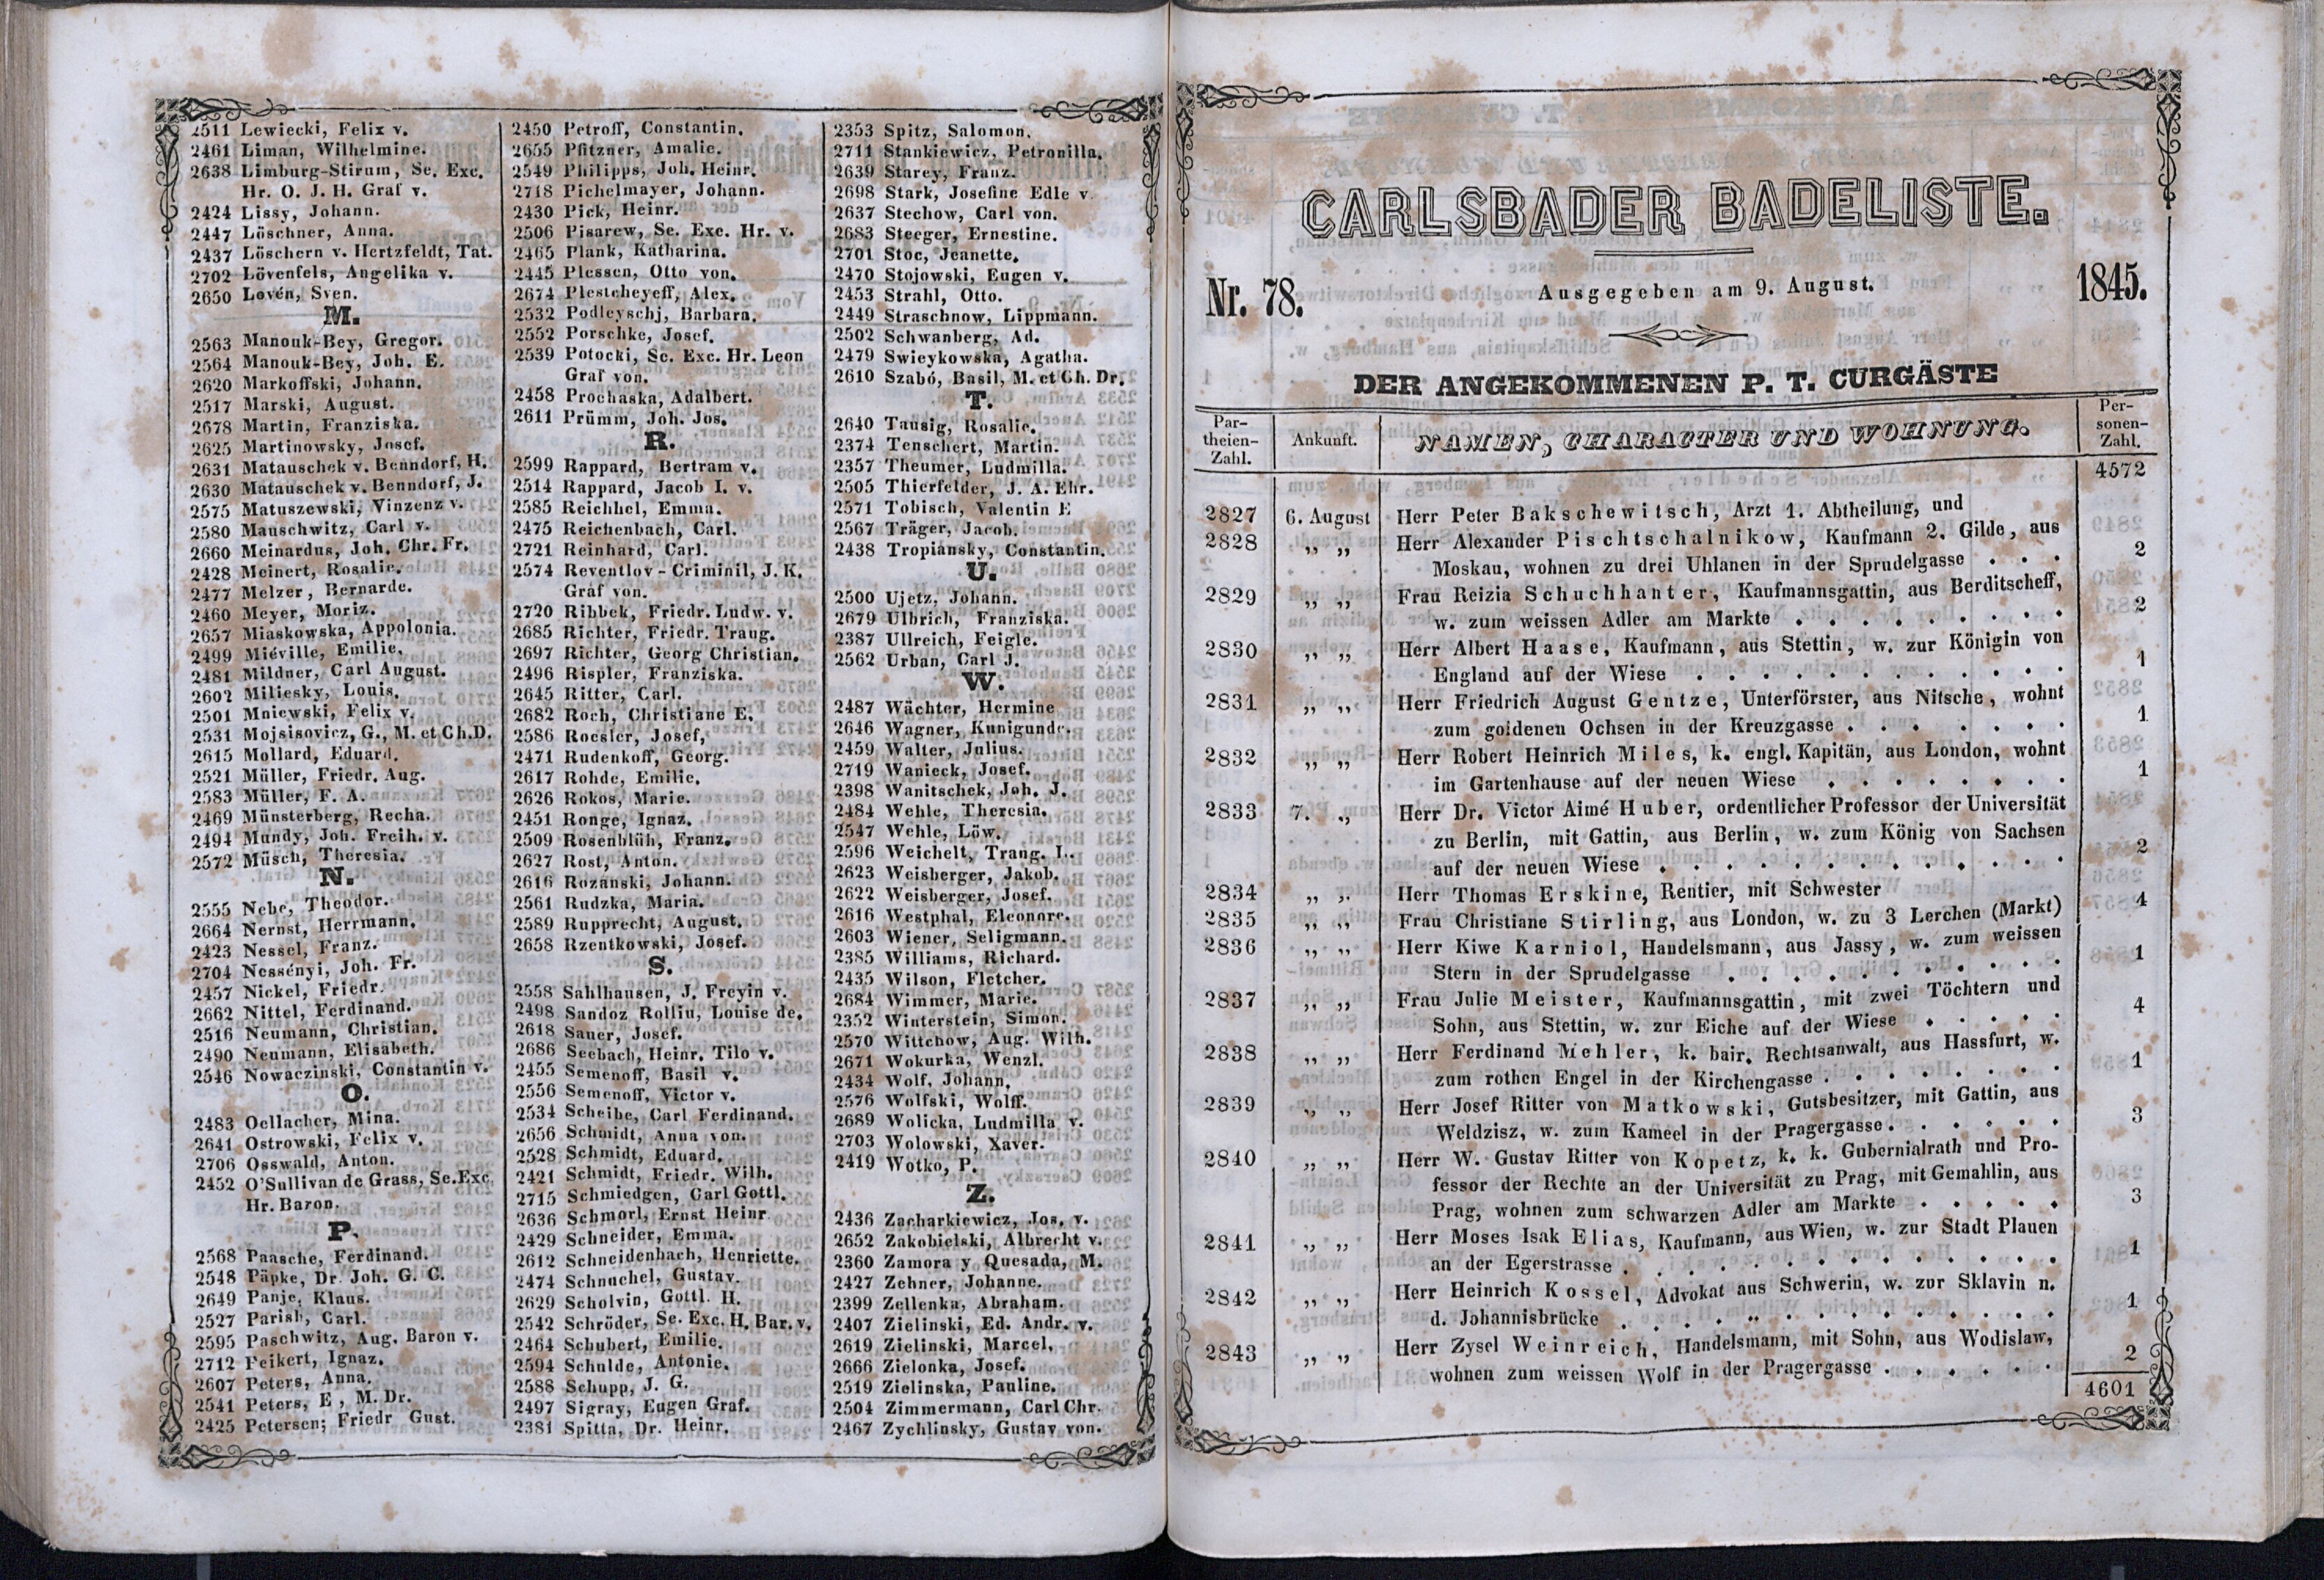 2511 Lewiecki, Felix v.
2461 Liman, Wilhelmine.
2638 Limburg-Stirum, Se. Exc.
Hr. O. J. H. Graf v.
2424 Lissy, Johann.
2447 Löschner, Anna.
2437 Löschern v. Hertzfeldt, Tat.
2702 Lövenfels, Angelika v.
2650 Lovén, Sven.
M.
2563 Manouk-Bey, Gregor.
2564 Manouk-Bey, Joh. E.
2620 Markoffski, Johann.
2517 Marski, August.
2678 Martin, Franziska.
2625 Martinowsky, Josef.
2631 Matauschek v. Benndorf, H.
2630 Matauschek v. Benndorf, J.
2575 Matuszewski, Vinzenz v.
2580 Mauschwitz, Carl v.
2660 Meinardus, Joh. Chr. Fr.
2428 Meinert, Rosalie.
2477 Melzer, Bernarde.
2460 Meyer, Moriz.
2657 Miaskowska, Appolonia.
2499 Miéville, Emilie.
2481 Mildner, Carl August.
2602 Miliesky, Louis.
2501 Mniewski, Felix v.
2531 Mojsisovicz, G., M. et Ch. D.
2615 Mollard, Eduard.
2521 Müller, Friedr. Aug.
2583 Müller, F. A.
2469 Münsterberg, Recha.
2494 Mundy, Joh. Freih. v.
2572 Müsch, Theresia.
N.
2555 Nebe, Theodor.
2664 Nernst, Herrmann.
2423 Nessel, Franz.
2704 Nessényi, Joh. Fr.
2457 Nickel, Friedr.
2662 Nittel, Ferdinand.
2516 Neumann, Christian.
2490 Neumann, Elisabeth.
2546 Nowaczinski, Constantin v.
O.
2483 Oellacher, Mina.
2641 Ostrowski, Felix v.
2706 Osswald, Anton.
2452 O'Sullivan de Grass, Se. Exc
Hr. Baron.
P.
2568 Paasche, Ferdinand.
2548 Päpke, Dr. Joh. G. C.
2649 Panje, Klaus.
2527 Parish, Carl.
2595 Paschwitz, Aug. Baron v.
2712 Peikert, Ignaz.
2607 Peters, Anna.
2541 Peters, E, M. Dr.
2425 Petersen; Friedr Gust.
2450 Petroff, Constantin.
2655 Pfitzner, Amalie.
2549 Philipps, Joh. Heinr.
2718 Pichelmayer, Johann.
2430 Pick, Heinr.
2506 Pisarew, Se. Exc. Hr. v.
2465 Plank, Katharina.
2445 Plessen, Otto von.
2674 Plestcheyeff, Alex.
2532 Podleyschj, Barbara.
2552 Porschke, Josef.
2539 Potocki, Se. Exc. Hr. Leon
Graf von.
2458 Prochaska, Adalbert.
2611 Prümm, Joh. Jos.
R.
2599 Rappard, Bertram v.
2514 Rappard, Jacob I. v.
2585 Reichhel, Emma.
2475 Reichenbach, Carl.
2721 Reinhard, Carl.
2574 Reventlov-Criminil, J. K.
Graf von.
2720 Ribbek, Friedr. Ludw. v.
2685 Richter, Friedr. Traug.
2697 Richter, Georg Christian.
2496 Rispler, Franziska.
2645 Ritter, Carl.
2682 Roch, Christiane E.
2586 Roesler, Josef,
2471 Rudenkoff, Georg.
2617 Rohde, Emilie.
2626 Rokos, Marie.
2451 Ronge, Ignaz.
2509 Rosenblüh, Franz.
2627 Rost, Anton.
2616 Rozanski, Johann.
2561 Rudzka, Maria.
2589 Rupprecht, August.
2658 Rzentkowski, Josef.
S.
2558 Sahlhausen, J. Freyin v.
2498 Sandoz Rolliu, Louise de.
2618 Sauer, Josef.
2686 Seebach, Heinr. Tilo v.
2455 Semenoff, Basil v.
2556 Semenoff, Victor v.
2534 Scheibe, Carl Ferdinand.
2656 Schmidt, Anna von.
2528 Schmidt, Eduard.
2421 Schmidt, Friedr. Wilh.
2715 Schmiedgen, Carl Gottl.
2636 Schmorl, Ernst Heinr
2429 Schneider, Emma.
2612 Schneidenbach, Henriette.
2474 Schnuchel, Gustav.
2629 Scholvin, Gottl. H.
2542 Schröder, Se. Exc. H. Bar. v.
2464 Schubert, Emilie.
2594 Schulde, Antonie.
2588 Schupp, J. G.
2497 Sigray, Eugen Graf.
2381 Spitta, Dr. Heinr.
2353 Spitz, Salomon.
2711 Stankiewicz, Petronilla.
2639 Starey, Franz.
2698 Stark, Josefine Edle v
2637 Stechow, Carl von.
2683 Steeger, Ernestine.
2701 Stoc, Jeanette.
2470 Stojowski, Eugen v.
2453 Strahl, Otto.
2449 Straschnow, Lippmann.
2502 Schwanberg, Ad.
2479 Swieykowska, Agatha.
2610 Szabó, Basil, M. et Ch. Dr.
T.
2640 Tausig, Rosalie.
2374 Tenschert, Martin.
2357 Theumer, Ludmilla.
2505 Thierfelder, J. A. Ehr.
2571 Tobisch, Valentin E
2567 Träger, Jacob.
2438 Tropiansky, Constantin.
U.
2500 Ujetz, Johann.
2679 Ulbrich, Franziska.
2387 Ullreich, Feigle.
2562 Urban, Carl J.
W.
2487 Wächter, Hermine
2646 Wagner, Kunigunde.
2459 Walter, Julius.
2719 Wanieck, Josef.
2398 Wanitschek, Joh. J.
2484 Wehle, Theresia.
2547 Wehle, Löw.
2596 Weichelt, Trang. L.
2623 Weisberger, Jakob.
2622 Weisberger, Josef.
2616 Westphal, Eleonore.
2603 Wiener, Seligmann.
2385 Williams, Richard.
2435 Wilson, Fletcher.
2684 Wimmer, Marie.
2352 Winterstein, Simon.
2570 Wittchow, Aug. Wilh.
2671 Wokurka, Wenzl.
2434 Wolf, Johann.
2576 Wolfski, Wolff.
2689 Wolicka, Ludmilla v.
2703 Wolowski, Xaver.
2419 Wotko, P.
Z.
2436 Zacharkiewicz, Jos. v.
2652 Zakobielski, Albrecht v.
2360 Zamora y Quesada, M.
2427 Zehner, Johanne.
2399 Zellenka, Abraham.
2407 Zielinski, Ed. Andr. v.
2619 Zielinski, Marcel.
2666 Zielonka, Josef.
2519 Zielinska, Pauline.
2504 Zimmermann, Carl Chr.
2467 Zychlinsky, Gustav von.
CARLSBADER BADELISTE.
Nr. 78. Ausgegeben am 9. August. 1845.
DER ANGEKOMMENEN P. T. CURGÄSTE
Par-
theien-
Zahl.
Ankunft.
NAMEN, CHARACTER UND WOHNUNG.
Per-
sonen-
Zahl.
4572
2827 6. August Herr Peter Bakschewitsch, Arzt 1. Abtheilung, und
2828 „ „ Herr Alexander Pischtschalnikow, Kaufmann 2. Gilde, aus
Moskau, wohnen zu drei Uhlanen in der Sprudelgasse . . . 2
2829 „ „ Frau Reizia Schuchhanter, Kaufmannsgattin, aus Berditscheff,
w. zum weissen Adler am Markte . . . . . . . . 2
2830 „ „ Herr Albert Haase, Kaufmann, aus Stettin, w. zur Königin von
England auf der Wiese . . . . . . . . . . 1
2831 „ „ Herr Friedrich August Gentze, Unterförster, aus Nitsche, wohnt
zum goldenen Ochsen in der Kreuzgasse . . . . . . . 1
2832 „ „ Herr Robert Heinrich Miles, k. engl. Kapitän, aus London, wohnt
im Gartenhause auf der neuen Wiese . . . . . . . 1
2833 7. „ Herr Dr. Victor Aimé Huber, ordentlicher Professor der Universität
zu Berlin, mit Gattin, aus Berlin, w. zum König von Sachsen
auf der neuen Wiese . . . . . . . . . . . . 2
2834 „ „ Herr Thomas Erskine, Rentier, mit Schwester
2835 „ „ Frau Christiane Stirling, aus London, w. zu 3 Lerchen (Markt) 4
2836 „ „ Herr Kiwe Karniol, Handelsmann, aus Jassy, w. zum weissen
Stern in der Sprudelgasse . . . . . . . . . . 1
2837 „ „ Frau Julie Meister, Kaufmannsgattin, mit zwei Töchtern und
Sohn, aus Stettin, w. zur Eiche auf der Wiese . . . . . 4
2838 „ „ Herr Ferdinand Mehler, k. bair. Rechtsanwalt, aus Hassfurt, w.
zum rothen Engel in der Kirchengasse . . . . . . . . 1
2839 „ „ Herr Josef Ritter von Matkowski, Gutsbesitzer, mit Gattin, aus
Weldzisz, w. zum Kameel in der Pragergasse . . . . . . 3
2840 „ „ Herr W. Gustav Ritter von Kopetz, k. k. Gubernialrath und Pro-
fessor der Rechte an der Universität zu Prag, mit Gemahlin, aus
Prag, wohnen zum schwarzen Adler am Markte . . . . . 3
2841 „ „ Herr Moses Isak Elias, Kaufmann, aus Wien, w. zur Stadt Plauen
an der Egerstrasse . . . . . . . . . . . . . 1
2842 „ „ Herr Heinrich Kossel, Advokat aus Schwerin, w. zur Sklavin n.
d. Johannisbrücke . . . . . . . . . . . . . 1
2843 „ „ Herr Zysel Weinreich, Handelsmann, mit Sohn, aus Wodislaw,
wohnen zum weissen Wolf in der Pragergasse . . . . . . 2
4601